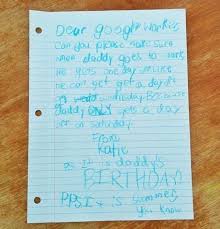 Dear google worker
Can you please make sure
when daddy goes to work
he gets one day off. Like
he can get get a day off
on wednesday. Because
daddy ONLY gets a day
off on saturday.
From
Katie
ps It is daddy's
BIRTHDAY!
PPS It is summer,
you know